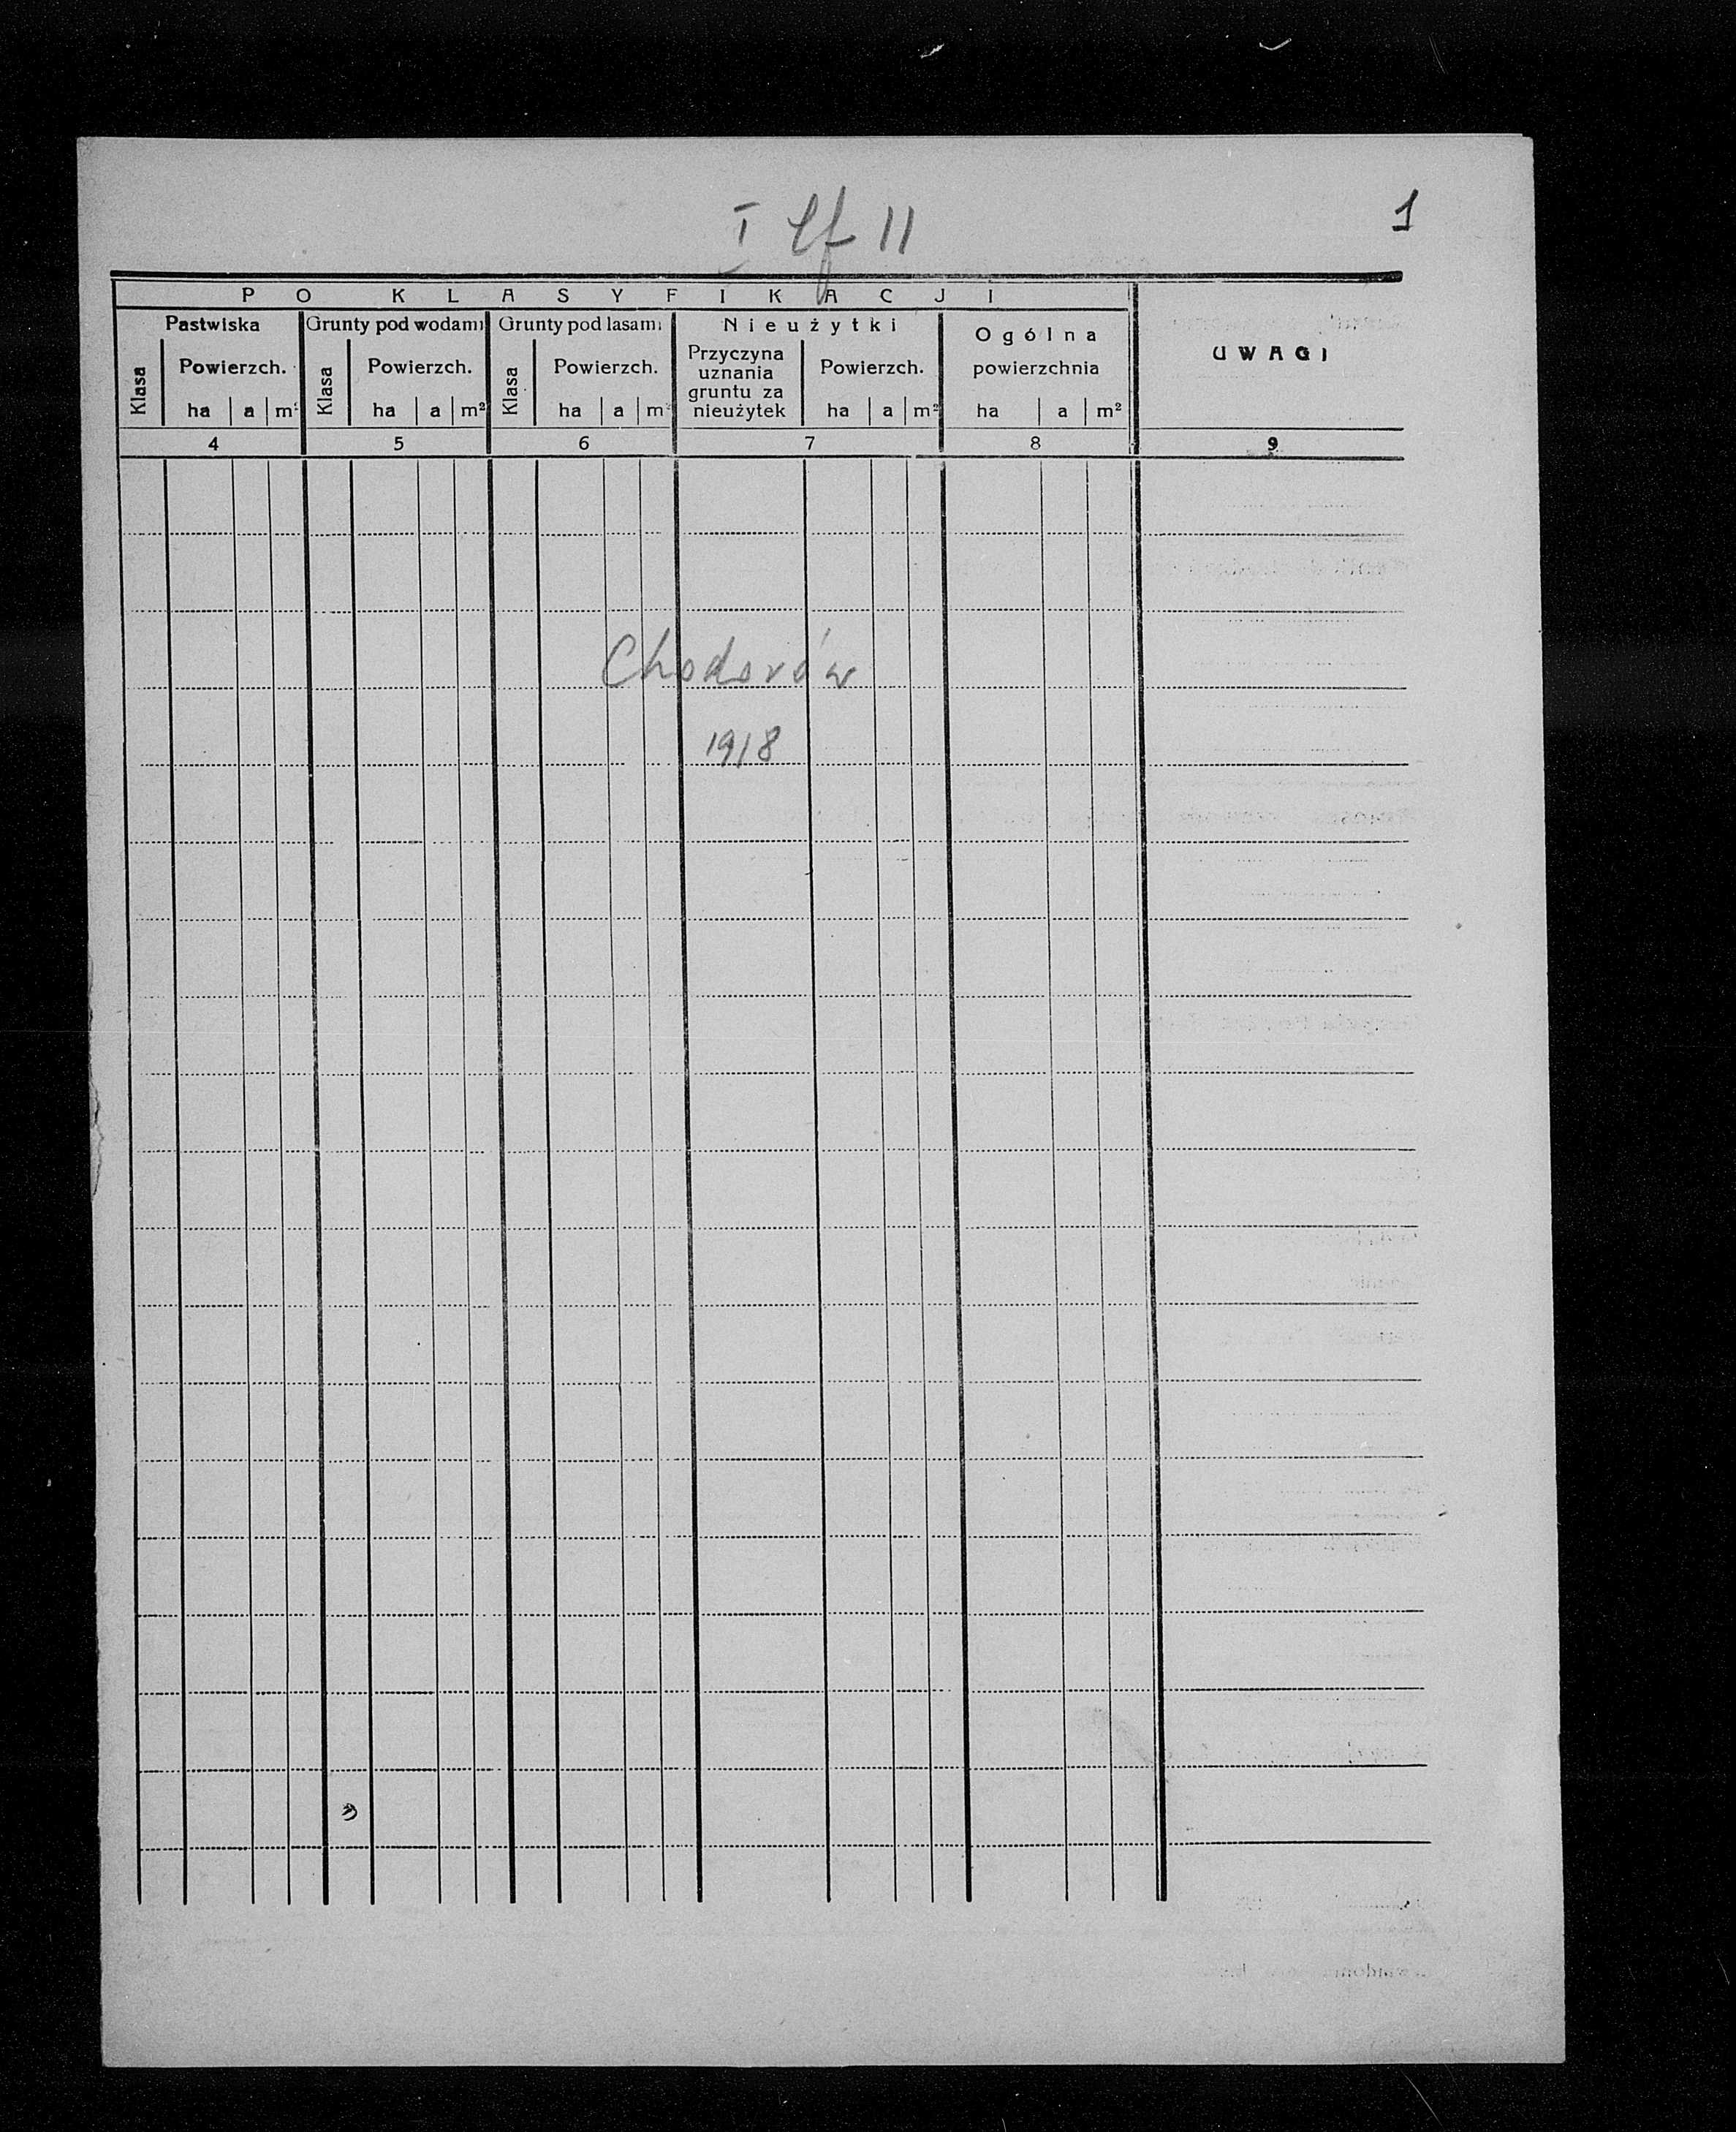 1
I Lf 11
PO KLASYFIKACJI
Pastwiska
Grunty pod wodami
Grunty pod lasami
Nieużytki
Ogólna powierzchnia
UWAGI
Klasa
Powierzch.
ha a m²
Klasa
Powierzch.
ha a m²
Klasa
Powierzch.
ha a m²
Przyczyna
uznania
gruntu za
nieużytek
Powierzch.
ha a m²
ha a m²
4 5 6 7 8 9
Chodorów
1918